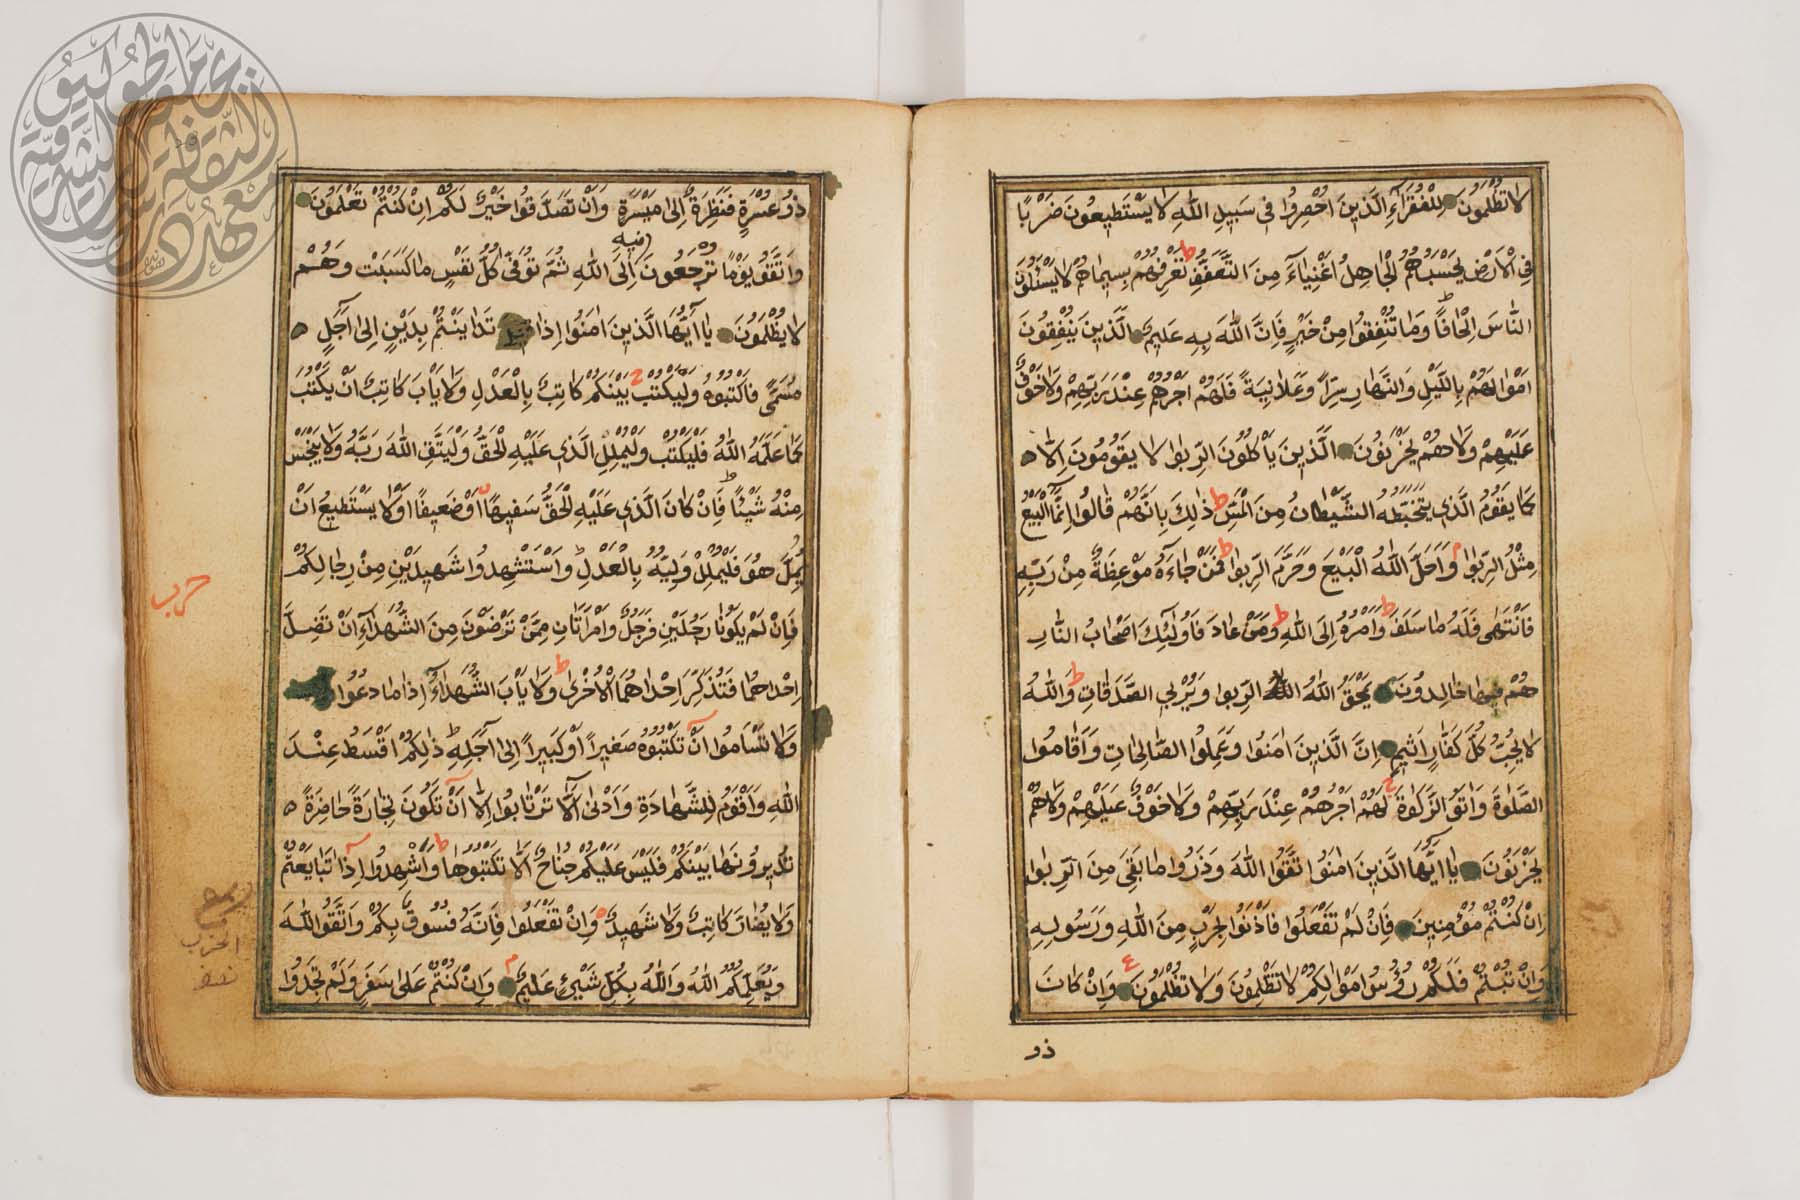 لَا تُظْلَمُونَ لِلْفُقَرَآءِ الَّذِينَ اُحْصِرُوا فِي سَبِيلِ اللّٰهِ لَا يَسْتَطِيعُونَ ضَرْبًا
فِي الْاَرْضِ يَحْسَبُهُمُ الْجَاهِلُ اَغْنِيَآءَ مِنَ التَّعَفُّفِ ط تَعْرِفُهُمْ بِسِيمَاهُمْ لَا يَسْـَٔلُونَ
النَّاسَ اِلْحَافًا ط وَمَا تُنْفِقُوا مِنْ خَيْرٍ فَاِنَّ اللّٰهَ بِهِ عَلِيمٌ الَّذِينَ يُنْفِقُونَ
اَمْوَالَهُمْ بِاللَّيْلِ وَالنَّهَارِ سِرًّا وَعَلَانِيَةً فَلَهُمْ اَجْرُهُمْ عِنْدَ رَبِّهِمْ وَلَا خَوْفٌ
عَلَيْهِمْ وَلَا هُمْ يَحْزَنُونَ الَّذِينَ يَأْكُلُونَ الرِّبٰوا لَا يَقُومُونَ اِلَّا
كَمَا يَقُومُ الَّذِي يَتَخَبَّطُهُ الشَّيْطَانُ مِنَ الْمَسِّ ط ذٰلِكَ بِاَنَّهُمْ قَالُوا اِنَّمَا الْبَيْعُ
مِثْلُ الرِّبٰوا م وَاَحَلَّ اللّٰهُ الْبَيْعَ وَحَرَّمَ الرِّبٰوا ط فَمَنْ جَآءَهُ مَوْعِظَةٌ مِنْ رَبِّهِ
فَانْتَهٰى فَلَهُ مَا سَلَفَ ط وَاَمْرُهُ اِلَى اللّٰهِ ط وَمَنْ عَادَ فَاُولٰٓئِكَ اَصْحَابُ النَّارِ
هُمْ فِيهَا خَالِدُونَ يَمْحَقُ اللّٰهُ الرِّبٰوا وَيُرْبِي الصَّدَقَاتِ ط وَاللّٰهُ
لَا يُحِبُّ كُلَّ كَفَّارٍ اَثِيمٍ اِنَّ الَّذِينَ اٰمَنُوا وَعَمِلُوا الصَّالِحَاتِ وَاَقَامُوا
الصَّلٰوةَ وَاٰتَوُا الزَّكٰوةَ لَهُمْ اَجْرُهُمْ عِنْدَ رَبِّهِمْ وَلَا خَوْفٌ عَلَيْهِمْ وَلَا هُمْ
يَحْزَنُونَ يَآ اَيُّهَا الَّذِينَ اٰمَنُوا اتَّقُوا اللّٰهَ وَذَرُوا مَا بَقِيَ مِنَ الرِّبٰوا
اِنْ كُنْتُمْ مُؤْمِنِينَ فَاِنْ لَمْ تَفْعَلُوا فَأْذَنُوا بِحَرْبٍ مِنَ اللّٰهِ وَرَسُولِهِ
وَاِنْ تُبْتُمْ فَلَكُمْ رُؤُسُ اَمْوَالِكُمْ لَا تَظْلِمُونَ وَلَا تُظْلَمُونَ ع وَاِنْ كَانَ
ذو
ذُو عُسْرَةٍ فَنَظِرَةٌ اِلٰى مَيْسَرَةٍ ط وَاَنْ تَصَدَّقُوا خَيْرٌ لَكُمْ اِنْ كُنْتُمْ تَعْلَمُونَ
وَاتَّقُوا يَوْمًا تُرْجَعُونَ فِيهِ اِلَى اللّٰهِ ثُمَّ تُوَفّٰى كُلُّ نَفْسٍ مَا كَسَبَتْ وَهُمْ
لَا يُظْلَمُونَ يَآ اَيُّهَا الَّذِينَ اٰمَنُوا اِذَا تَدَايَنْتُمْ بِدَيْنٍ اِلٰى اَجَلٍ
مُسَمًّى فَاكْتُبُوهُ وَلْيَكْتُبْ بَيْنَكُمْ كَاتِبٌ بِالْعَدْلِ وَلَا يَأْبَ كَاتِبٌ اَنْ يَكْتُبَ
كَمَا عَلَّمَهُ اللّٰهُ فَلْيَكْتُبْ وَلْيُمْلِلِ الَّذِي عَلَيْهِ الْحَقُّ وَلْيَتَّقِ اللّٰهَ رَبَّهُ وَلَا يَبْخَسْ
مِنْهُ شَيْئًا ط فَاِنْ كَانَ الَّذِي عَلَيْهِ الْحَقُّ سَفِيهًا اَوْ ضَعِيفًا اَوْ لَا يَسْتَطِيعُ اَنْ
يُمِلَّ هُوَ فَلْيُمْلِلْ وَلِيُّهُ بِالْعَدْلِ ط وَاسْتَشْهِدُوا شَهِيدَيْنِ مِنْ رِجَالِكُمْ
فَاِنْ لَمْ يَكُونَا رَجُلَيْنِ فَرَجُلٌ وَامْرَاَتَانِ مِمَّنْ تَرْضَوْنَ مِنَ الشُّهَدَآءِ اَنْ تَضِلَّ
اِحْدَاهُمَا فَتُذَكِّرَ اِحْدَاهُمَا الْاُخْرٰى ط وَلَا يَأْبَ الشُّهَدَآءُ اِذَا مَا دُعُوا
وَلَا تَسْاَمُوا اَنْ تَكْتُبُوهُ صَغِيرًا اَوْ كَبِيرًا اِلٰى اَجَلِهِ ط ذٰلِكُمْ اَقْسَطُ عِنْدَ
اللّٰهِ وَاَقْوَمُ لِلشَّهَادَةِ وَاَدْنٰى اَلَّا تَرْتَابُوا اِلَّا اَنْ تَكُونَ تِجَارَةً حَاضِرَةً
تُدِيرُونَهَا بَيْنَكُمْ فَلَيْسَ عَلَيْكُمْ جُنَاحٌ اَلَّا تَكْتُبُوهَا ط وَاَشْهِدُوا اِذَا تَبَايَعْتُمْ
وَلَا يُضَارَّ كَاتِبٌ وَلَا شَهِيدٌ وَاِنْ تَفْعَلُوا فَاِنَّهُ فُسُوقٌ بِكُمْ وَاتَّقُوا اللّٰهَ
وَيُعَلِّمُكُمُ اللّٰهُ وَاللّٰهُ بِكُلِّ شَيْءٍ عَلِيمٌ م وَاِنْ كُنْتُمْ عَلٰى سَفَرٍ وَلَمْ تَجِدُوا
حزب
الحزب
نصف